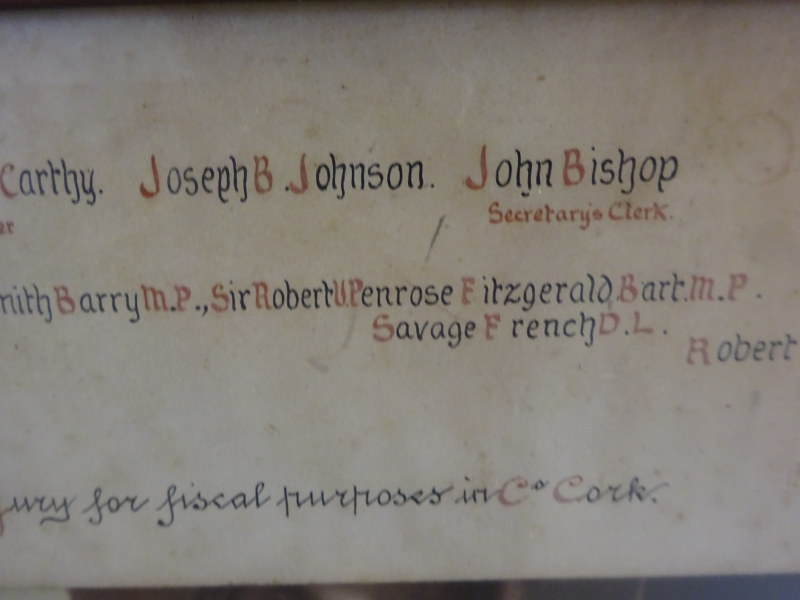 Carthy. Joseph B. Johnson. John Bishop
er Secretary's Clerk.
mith Barry M.P., Sir Robert U. Penrose Fitzgerald, Bart. M.P.
Savage French D.L.
Robert
jury for fiscal purposes in Co Cork.